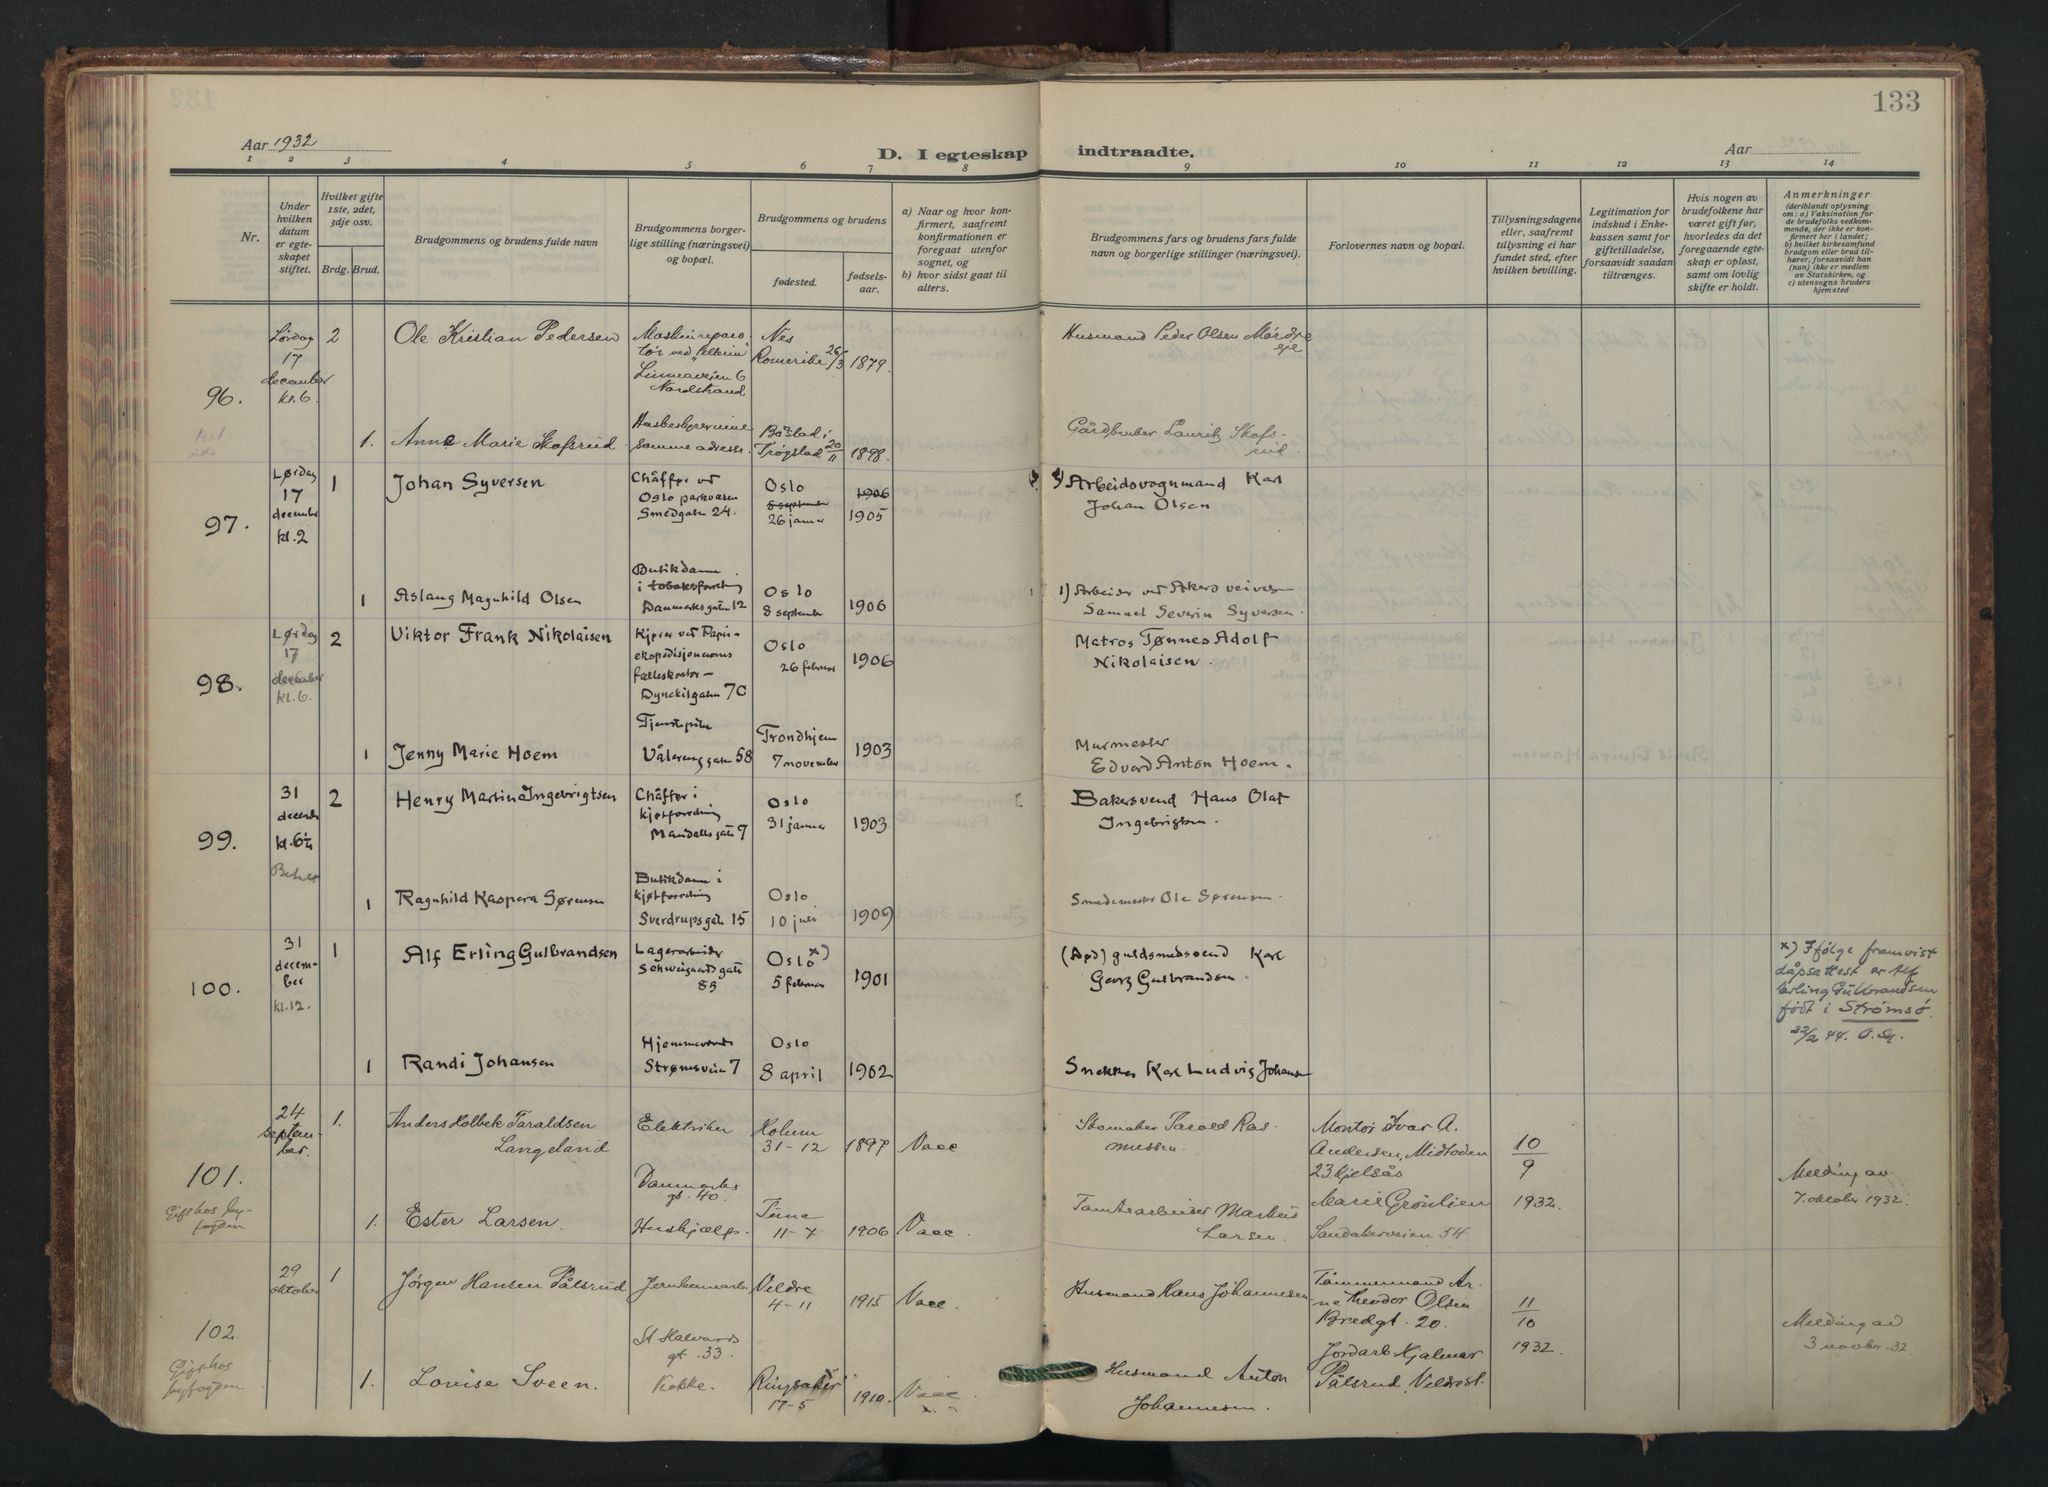 133
Aar 1932
D. I egteskap indtraadte.
Aar
1 2 3 4 5 6 7 8 9 10 11 12 13 14
Nr.
Under hvilken datum er egteskapet stiftet.
Hvilket gifte 1ste, 2det, 3dje osv.
Brdg. Brud.
Brudgommens og brudens fulde navn
Brudgommens borgerlige stilling (næringsvei) og bopæl.
Brudgommens og brudens
fødested.
fødselsaar.
a) Naar og hvor konfirmert, saafremt konfirmationen er foregaat utenfor sognet, og
b) hvor sidst gaat til alters.
Brudgommens fars og brudens fars fulde navn og borgerlige stillinger (næringsvei).
Forlovernes navn og bopæl.
Tillysningsdagene eller, saafremt tillysning ei har fundet sted, efter hvilken bevilling.
Legitimation for indskud i Enkekassen samt for giftetilladelse, forsaavidt saadan tiltrænges.
Hvis nogen av brudefolkene har været gift før, hvorledes da det foregaaende egteskap er opløst, samt om lovlig skifte er holdt.
Anmerkninger
(deriblandt oplysning om: a) Vaksination for de brudefolks vedkommende, der ikke er konfirmert her i landet; b) hvilket kirkesamfund brudgom eller brud tilhører, forsaavidt han (hun) ikke er medlem av Statskirken, og c) utensogns bruders hjemsted
96.
Lørdag 17 december kl. 6.
2
Ole Kristian Pedersen
Maskinrepara
tør ved
Linneaveien 6
Nordstrand
Nes
Romerike 26/3 1879.
Husmand Peder Olsen Mørdre
eje
1.
Anne Marie Skofsrud
Husbestyrerinne
samme adresse.
Båstad i
Trøgstad 20/11 1898.
Gårdbruker Lauritz Skofs-
rud
97.
Lørdag 17 december kl. 2
1
Johan Syversen
Chåffør ved
Oslo parkvesen
Smedgaten 24.
Oslo
8 september 1906
26 januar 1905
Arbeidsvognmand Karl
Johan Olsen
1
Aslaug Magnhild Olsen
Butikdame
i tobaksforretn
Danmarksgaten 12
Oslo
8 september 1906
1) Arbeider ved Akers veivesen
Samuel Severin Syversen.
98.
Lørdag 17 december kl. 6.
2
Viktor Frank Nikolaisen
Kjører ved Papir-
ekspedisjonenes
felleskontor -
Dynekilgaten 7C
Oslo
26 februar 1906
Matros Tønnes Adolf
Nikolaisen.
1
Jenny Marie Hoem
Tjenestepike
Vålerenggaten 58
Trondhjem
7 november 1903
Murmester
Edvard Anton Hoem.
99.
31 december kl. 6¼
2
Henry Martin Ingebrigtsen
Chåffør i
kjøtforretning
Mandalls gate 7
Oslo
31 januar 1903
Bakersvend Hans Olaf
Ingebrigtsen.
1
Ragnhild Kaspera Sørensen
Butikdame i
kjøtforretning
Sverdrupsgaten 15
Oslo
10 juli 1909
Smedemester Ole Sørensen
100.
31 december kl. 12.
1
Alf Erling Gulbrandsen
Lagerarbeider
Schweigaardsgate
89
Oslo x)
5 februar 1901
(Død) guldsmedsvend Karl
Georg Gulbrandsen
x) Ifølge framvist
dåpsattest er Alf
Erling Gulbrandsen
født i Strømsø.
22/2 44. O. Sg.
1
Randi Johansen
Hjemmeværende
Strømsveien 7
Oslo
8 april 1902
Snekker Karl Ludvig Johansen
101.
Gift hos by-
fogden
24 september.
1.
Anders Holbek Taraldsen
Langeland
Elektriker
Danmarks
gt. 40.
Holum
31-12 1897
Vacc
Skomaker Tarald Ras-
mussen.
Montør Ivar A.
Andersen, Midtoden
23 Kjelsås
10/9
1932.
Melding av
7. oktober 1932.
1.
Ester Larsen.
Hushjælp.
11-7 1906
Vacc.
Tomtearbeider Markus
Larsen.
Marie Grønlien
Sandakerveien 54.
102.
Gift hos
byfogden
29 oktober
1
Jørgen Hansen Pålsrud
Jernbanearb.
St Halvards
gt. 33.
Veldre
4-11 1915
Vacc.
Husmand Hans Johannesen
Tømmermand Ar-
ne Theodor Olsen
Bredgt. 20.
11/10
1932.
Melding av
3 novbr. 32.
1.
Lovise Sveen.
Kokke.
Ringsaker
17-5 1910.
Vacc.
Husmand Anton
Johannesen.
Jordarb Hjalmar
Pålsrud, Veldre st.